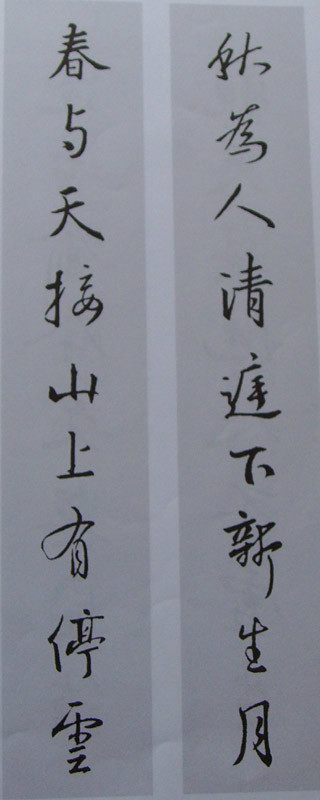 秋為人清庭下新生月
春与天接山上有停雲